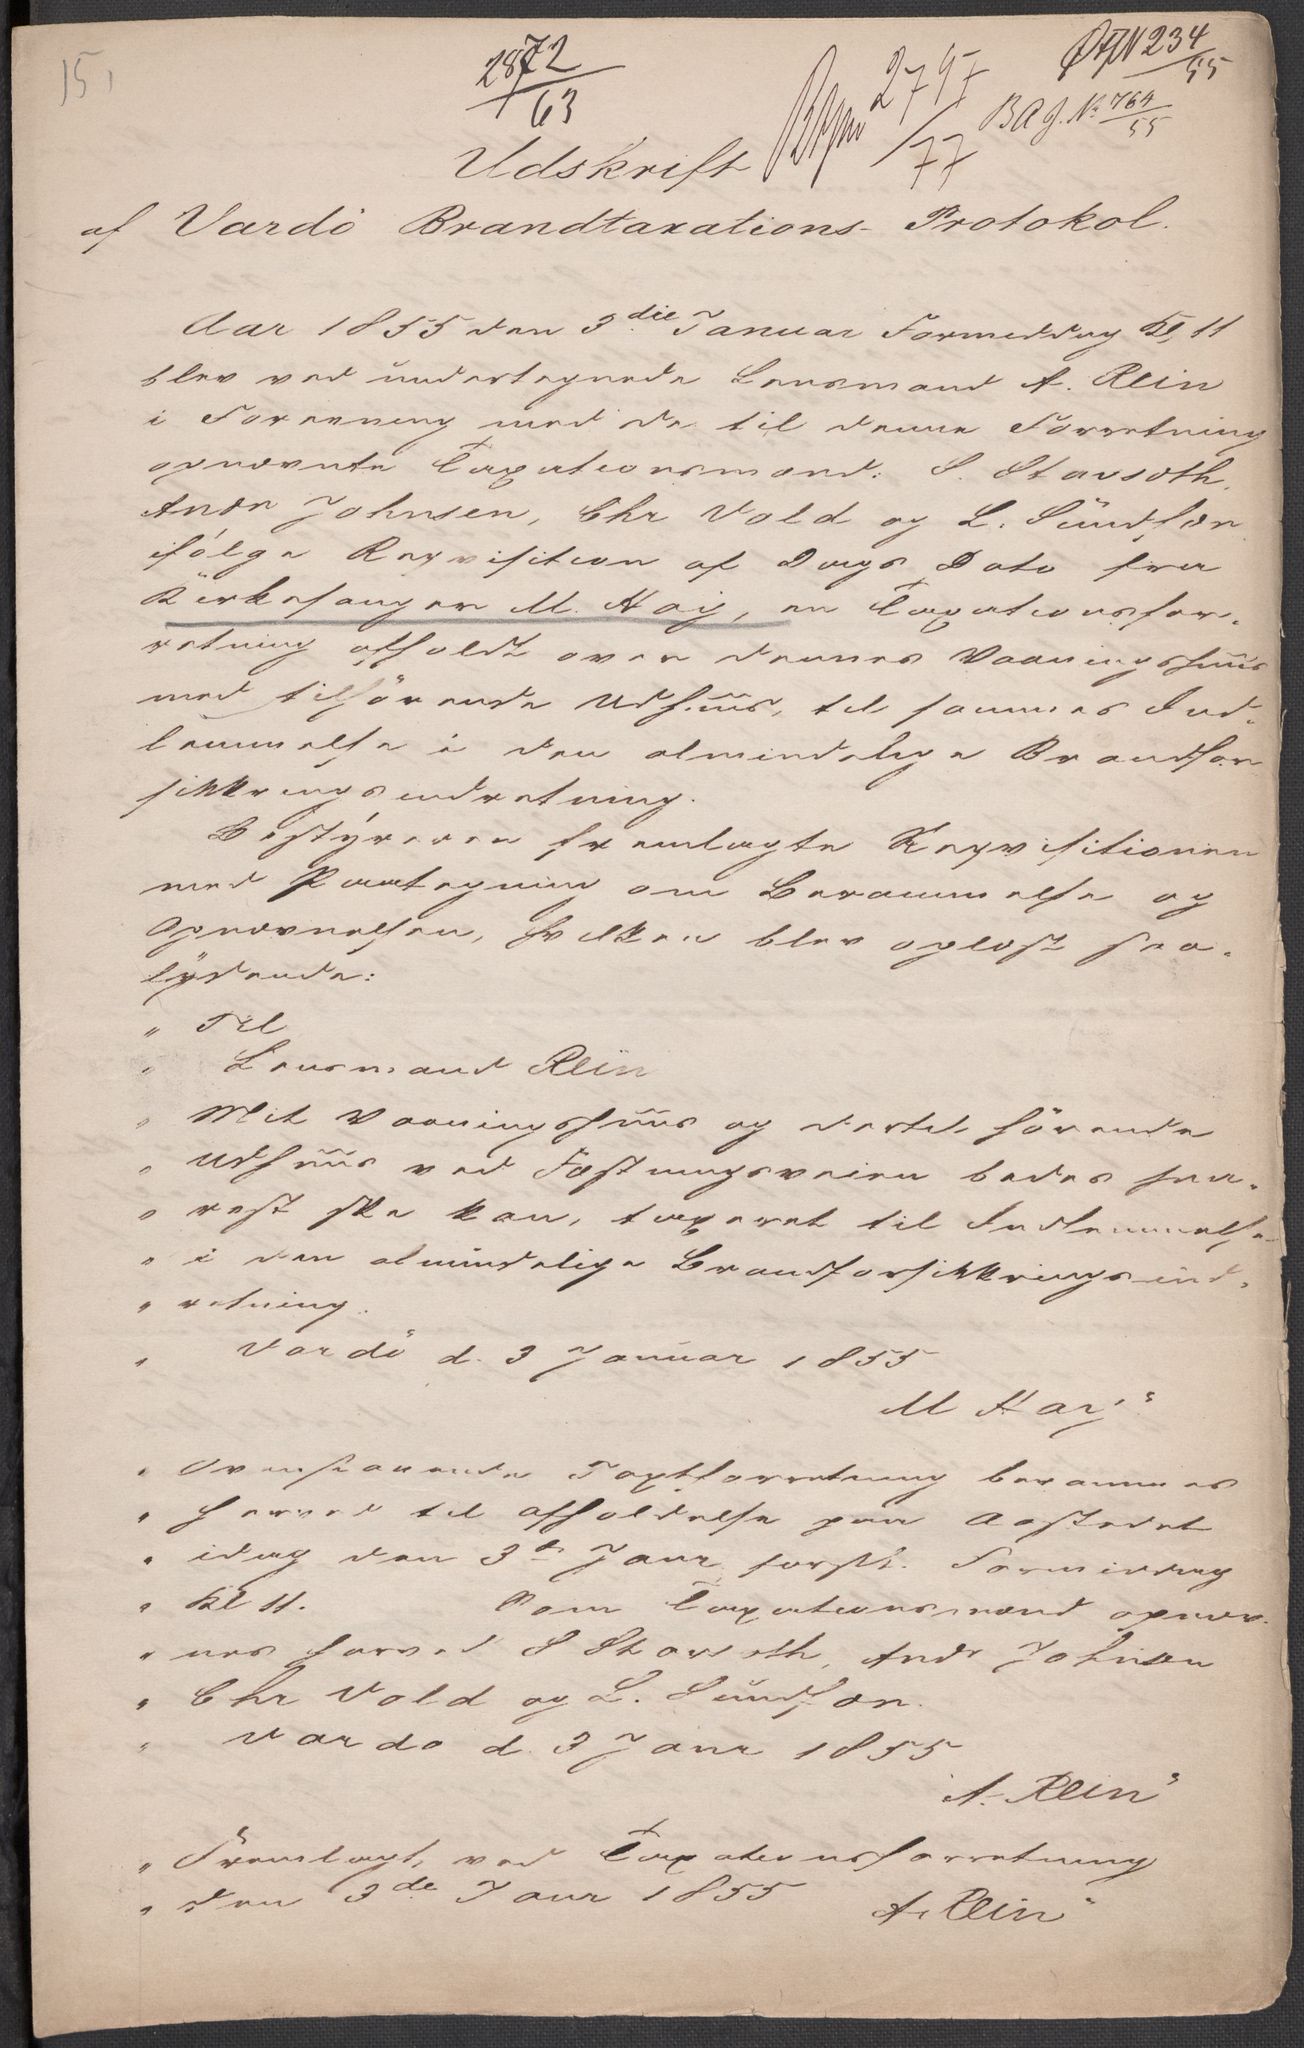 15,
2872/63
2797/77
234/55
B A J. No 764/55
Udskrift
af Vardö Brandtaxations-Protokol.
Aar 1855 den 3die Januar Formiddag Kl. 11
blev ved undertegnede Lensmand A. Rein
i Forening med de til denne Forretning
opnævnte Taxationsmænd: S. Stavseth,
Andr Johnsen, Chr Vold og L. Sundfær
ifölge Reqvisition af Dags Dato fra
Kirkesanger M. Haij, en Taxationsfor-
retning afholdt over dennes Vaaningshuus
med tilhörende Udhuus, til sammes Ind-
lemmelse i den almindelige Brandfor-
sikkringsindretning.
Bestÿreren fremlagte Reqvisitionen
med Paategning om Berammelse og
Opnævnelsen, hvilken blev oplæst saa-
lydende:
" Til
" Lensmand Rein
" Mit Vaaningshuus og dertil hörende
" Udhuus ved Fæstningsveien bedes sna-
" rest ske kan, taxeret til Indlemmelse
" i den almindelige Brandforsikkringsind-
" retning.
" Vardö d. 3 Januar 1855
M Haij"
" Ovenstaaende Taxtforretning berammes
" herved til afholdelse paa Aastedet
" idag den 3de Janr forsk. Formiddag
" Kl 11. Som Taxationsmænd opnæv-
" nes herved S Stavseth, Andr Johnsen
" Chr Vold og L. Sundfær.
" Vardö d. 3 Janr 1855
A. Rein"
" Fremlagt ved Taxationsforretning
" den 3de Janr 1855 A. Rein"